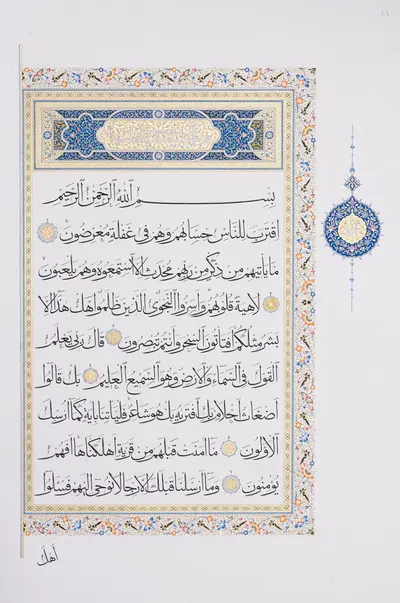 بِسْمِ اللهِ الرَّحْمٰنِ الرَّحِيمِ
اقْتَرَبَ لِلنَّاسِ حِسَابُهُمْ وَهُمْ فِي غَفْلَةٍ مُعْرِضُونَ
مَا يَأْتِيهِمْ مِنْ ذِكْرٍ مِنْ رَبِّهِمْ مُحْدَثٍ إِلَّا اسْتَمَعُوهُ وَهُمْ يَلْعَبُونَ
لَاهِيَةً قُلُوبُهُمْ وَأَسَرُّوا النَّجْوَى الَّذِينَ ظَلَمُوا هَلْ هَذَا إِلَّا
بَشَرٌ مِثْلُكُمْ أَفَتَأْتُونَ السِّحْرَ وَأَنْتُمْ تُبْصِرُونَ قَالَ رَبِّي يَعْلَمُ
الْقَوْلَ فِي السَّمَاءِ وَالْأَرْضِ وَهُوَ السَّمِيعُ الْعَلِيمُ بَلْ قَالُوا
أَضْغَاثُ أَحْلَامٍ بَلِ افْتَرَاهُ بَلْ هُوَ شَاعِرٌ فَلْيَأْتِنَا بِآيَةٍ كَمَا أُرْسِلَ
الْأَوَّلُونَ مَا آمَنَتْ قَبْلَهُمْ مِنْ قَرْيَةٍ أَهْلَكْنَاهَا أَفَهُمْ
يُؤْمِنُونَ وَمَا أَرْسَلْنَا قَبْلَكَ إِلَّا رِجَالًا نُوحِي إِلَيْهِمْ فَسْئَلُوا
أَهْلَ